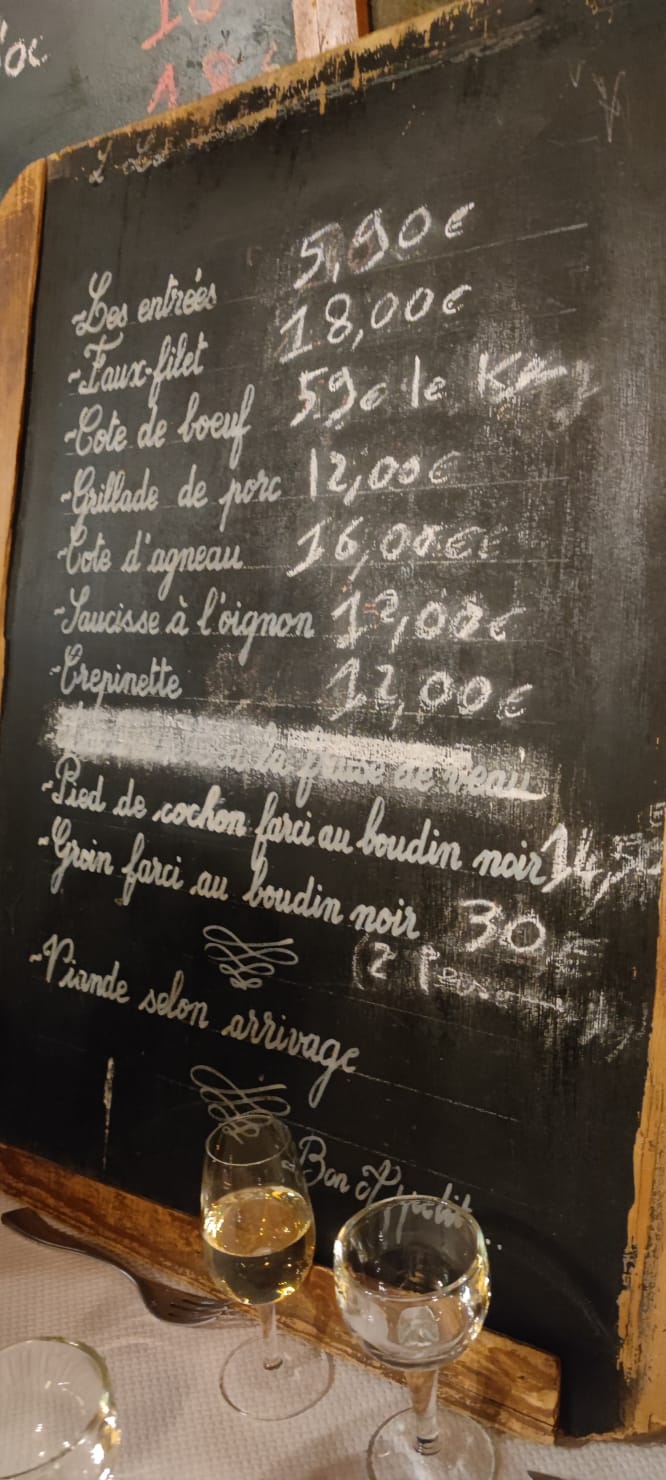 -Les entrées 5,90€
-Faux-filet 18,00€
-Cote de boeuf 59€ le Kg
-Grillade de porc 12,00€
-Cote d'agneau 16,00€
-Saucisse à l'oignon 12,00€
-Crepinette 12,00€
fraise de veau
-Pied de cochon farci au boudin noir 14,50
-Groin farci au boudin noir 30€
(2
-Viande selon arrivage
-Bon Appétit